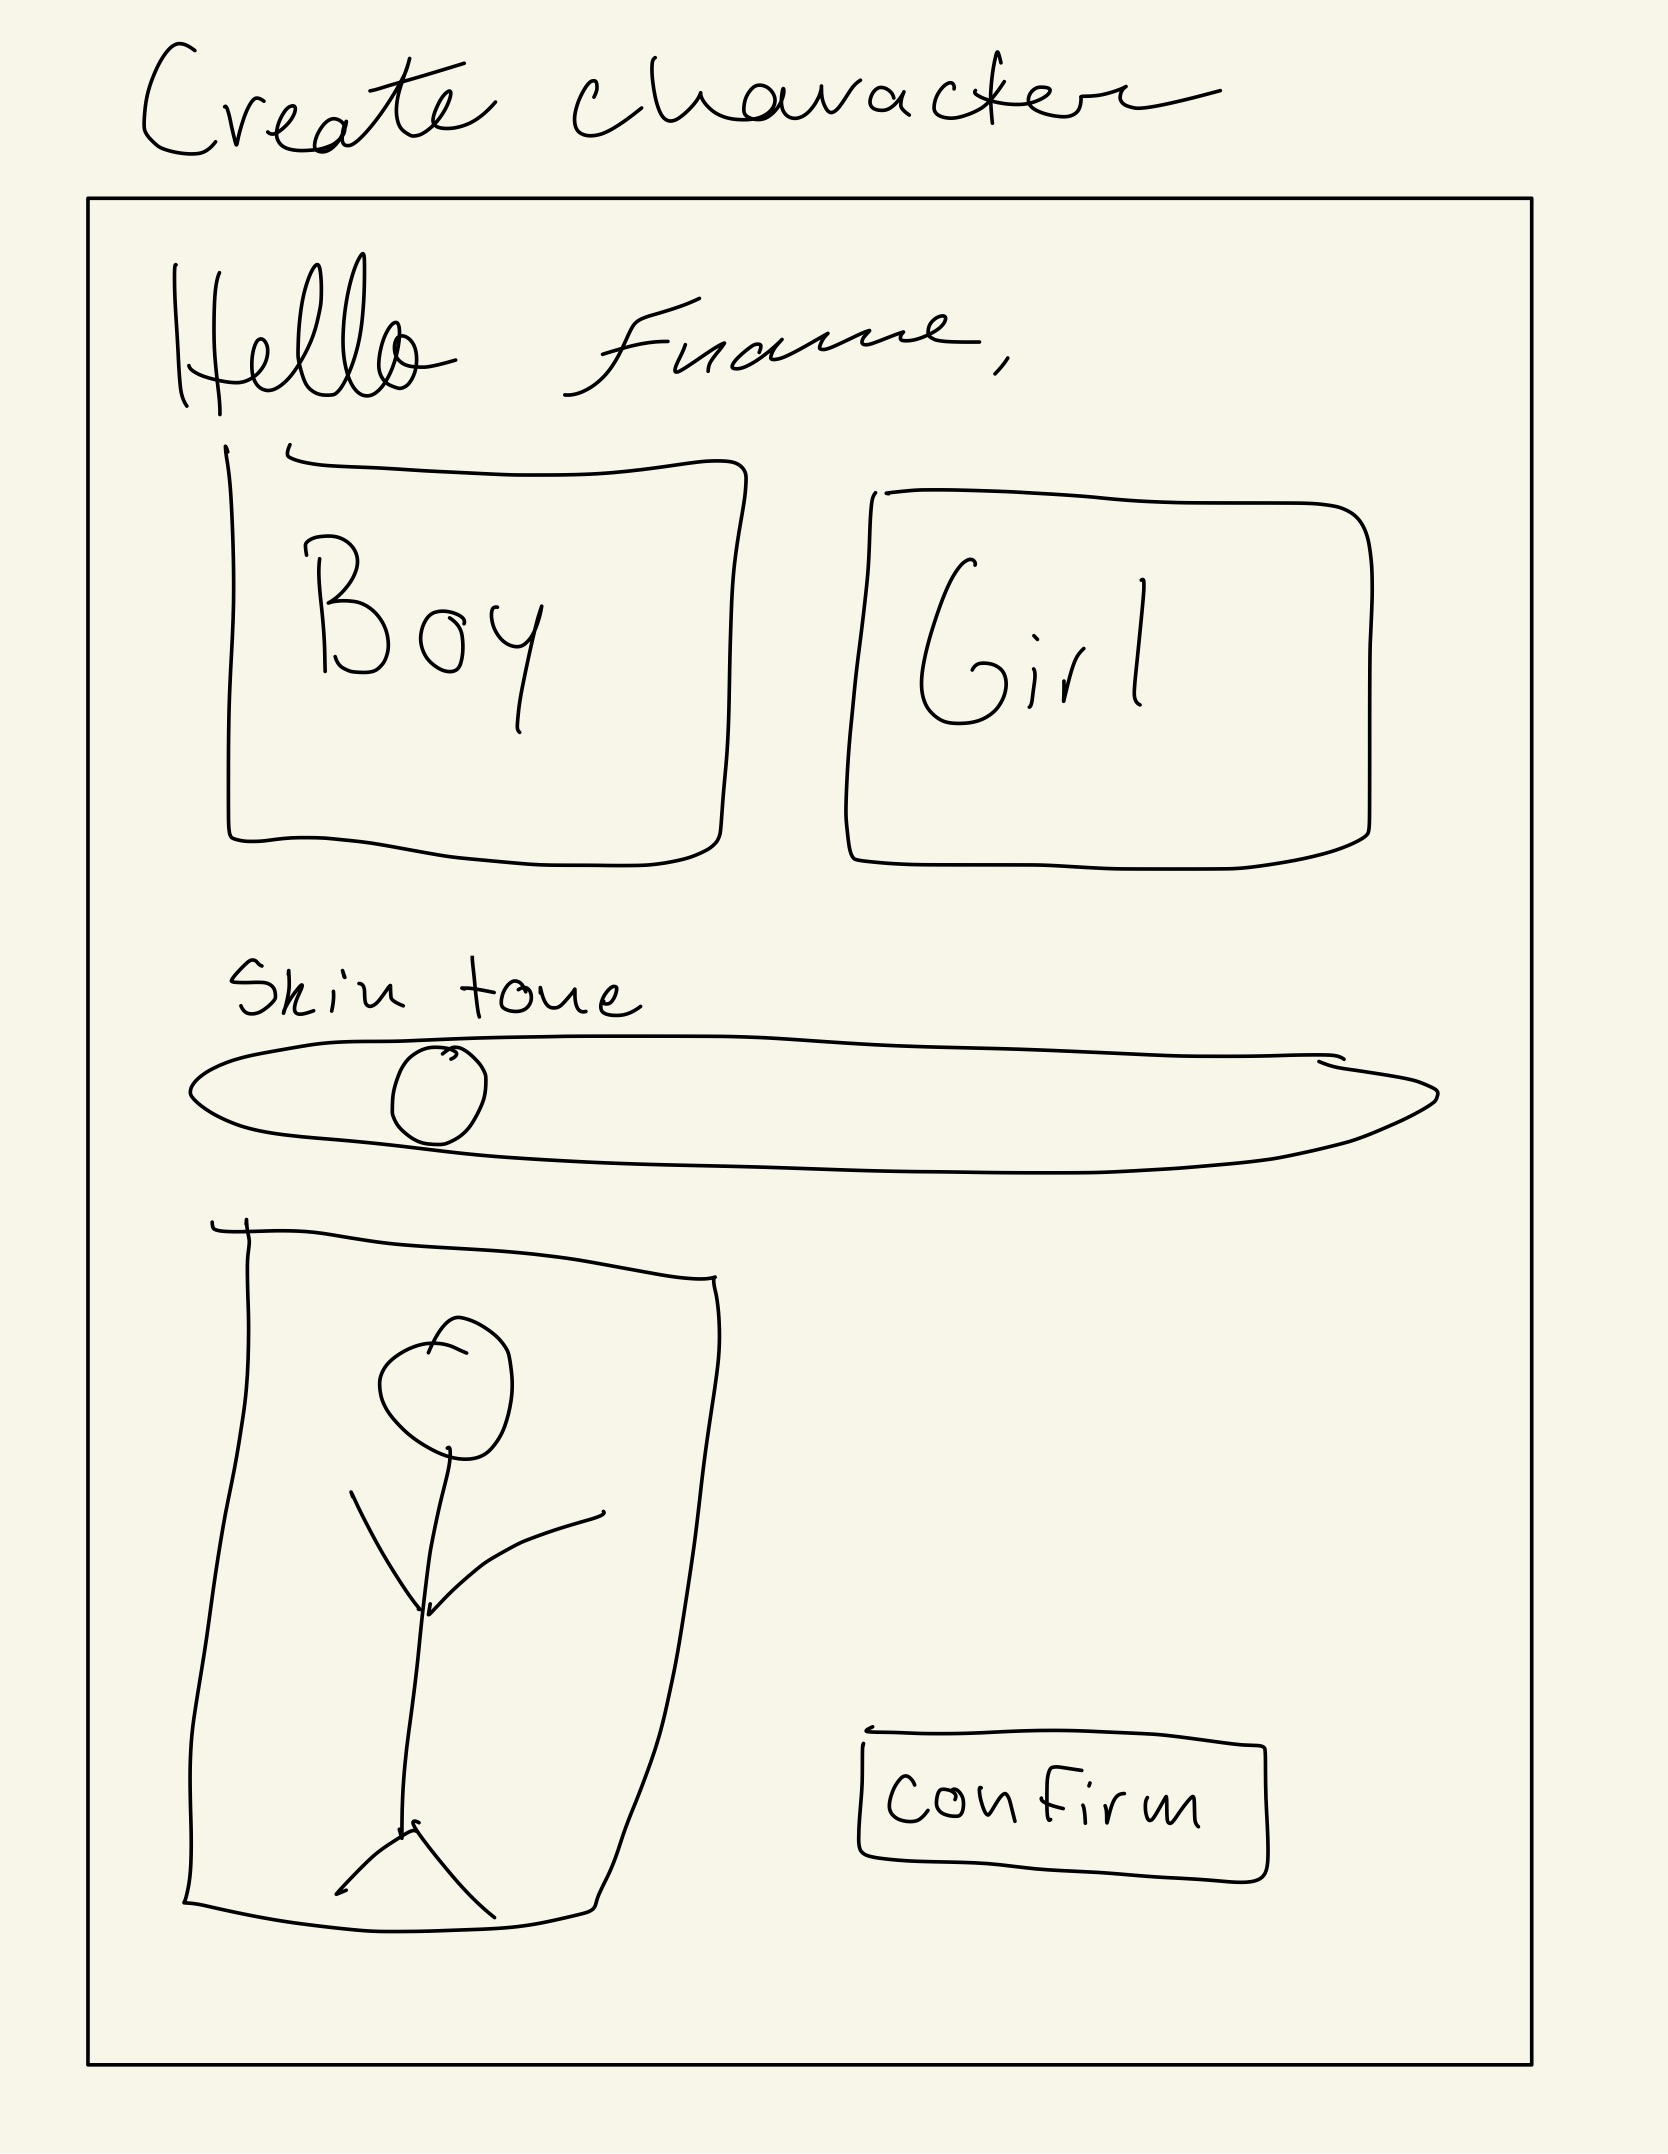 Create character
Hello Fname,
Boy
Girl
Skin tone
Confirm